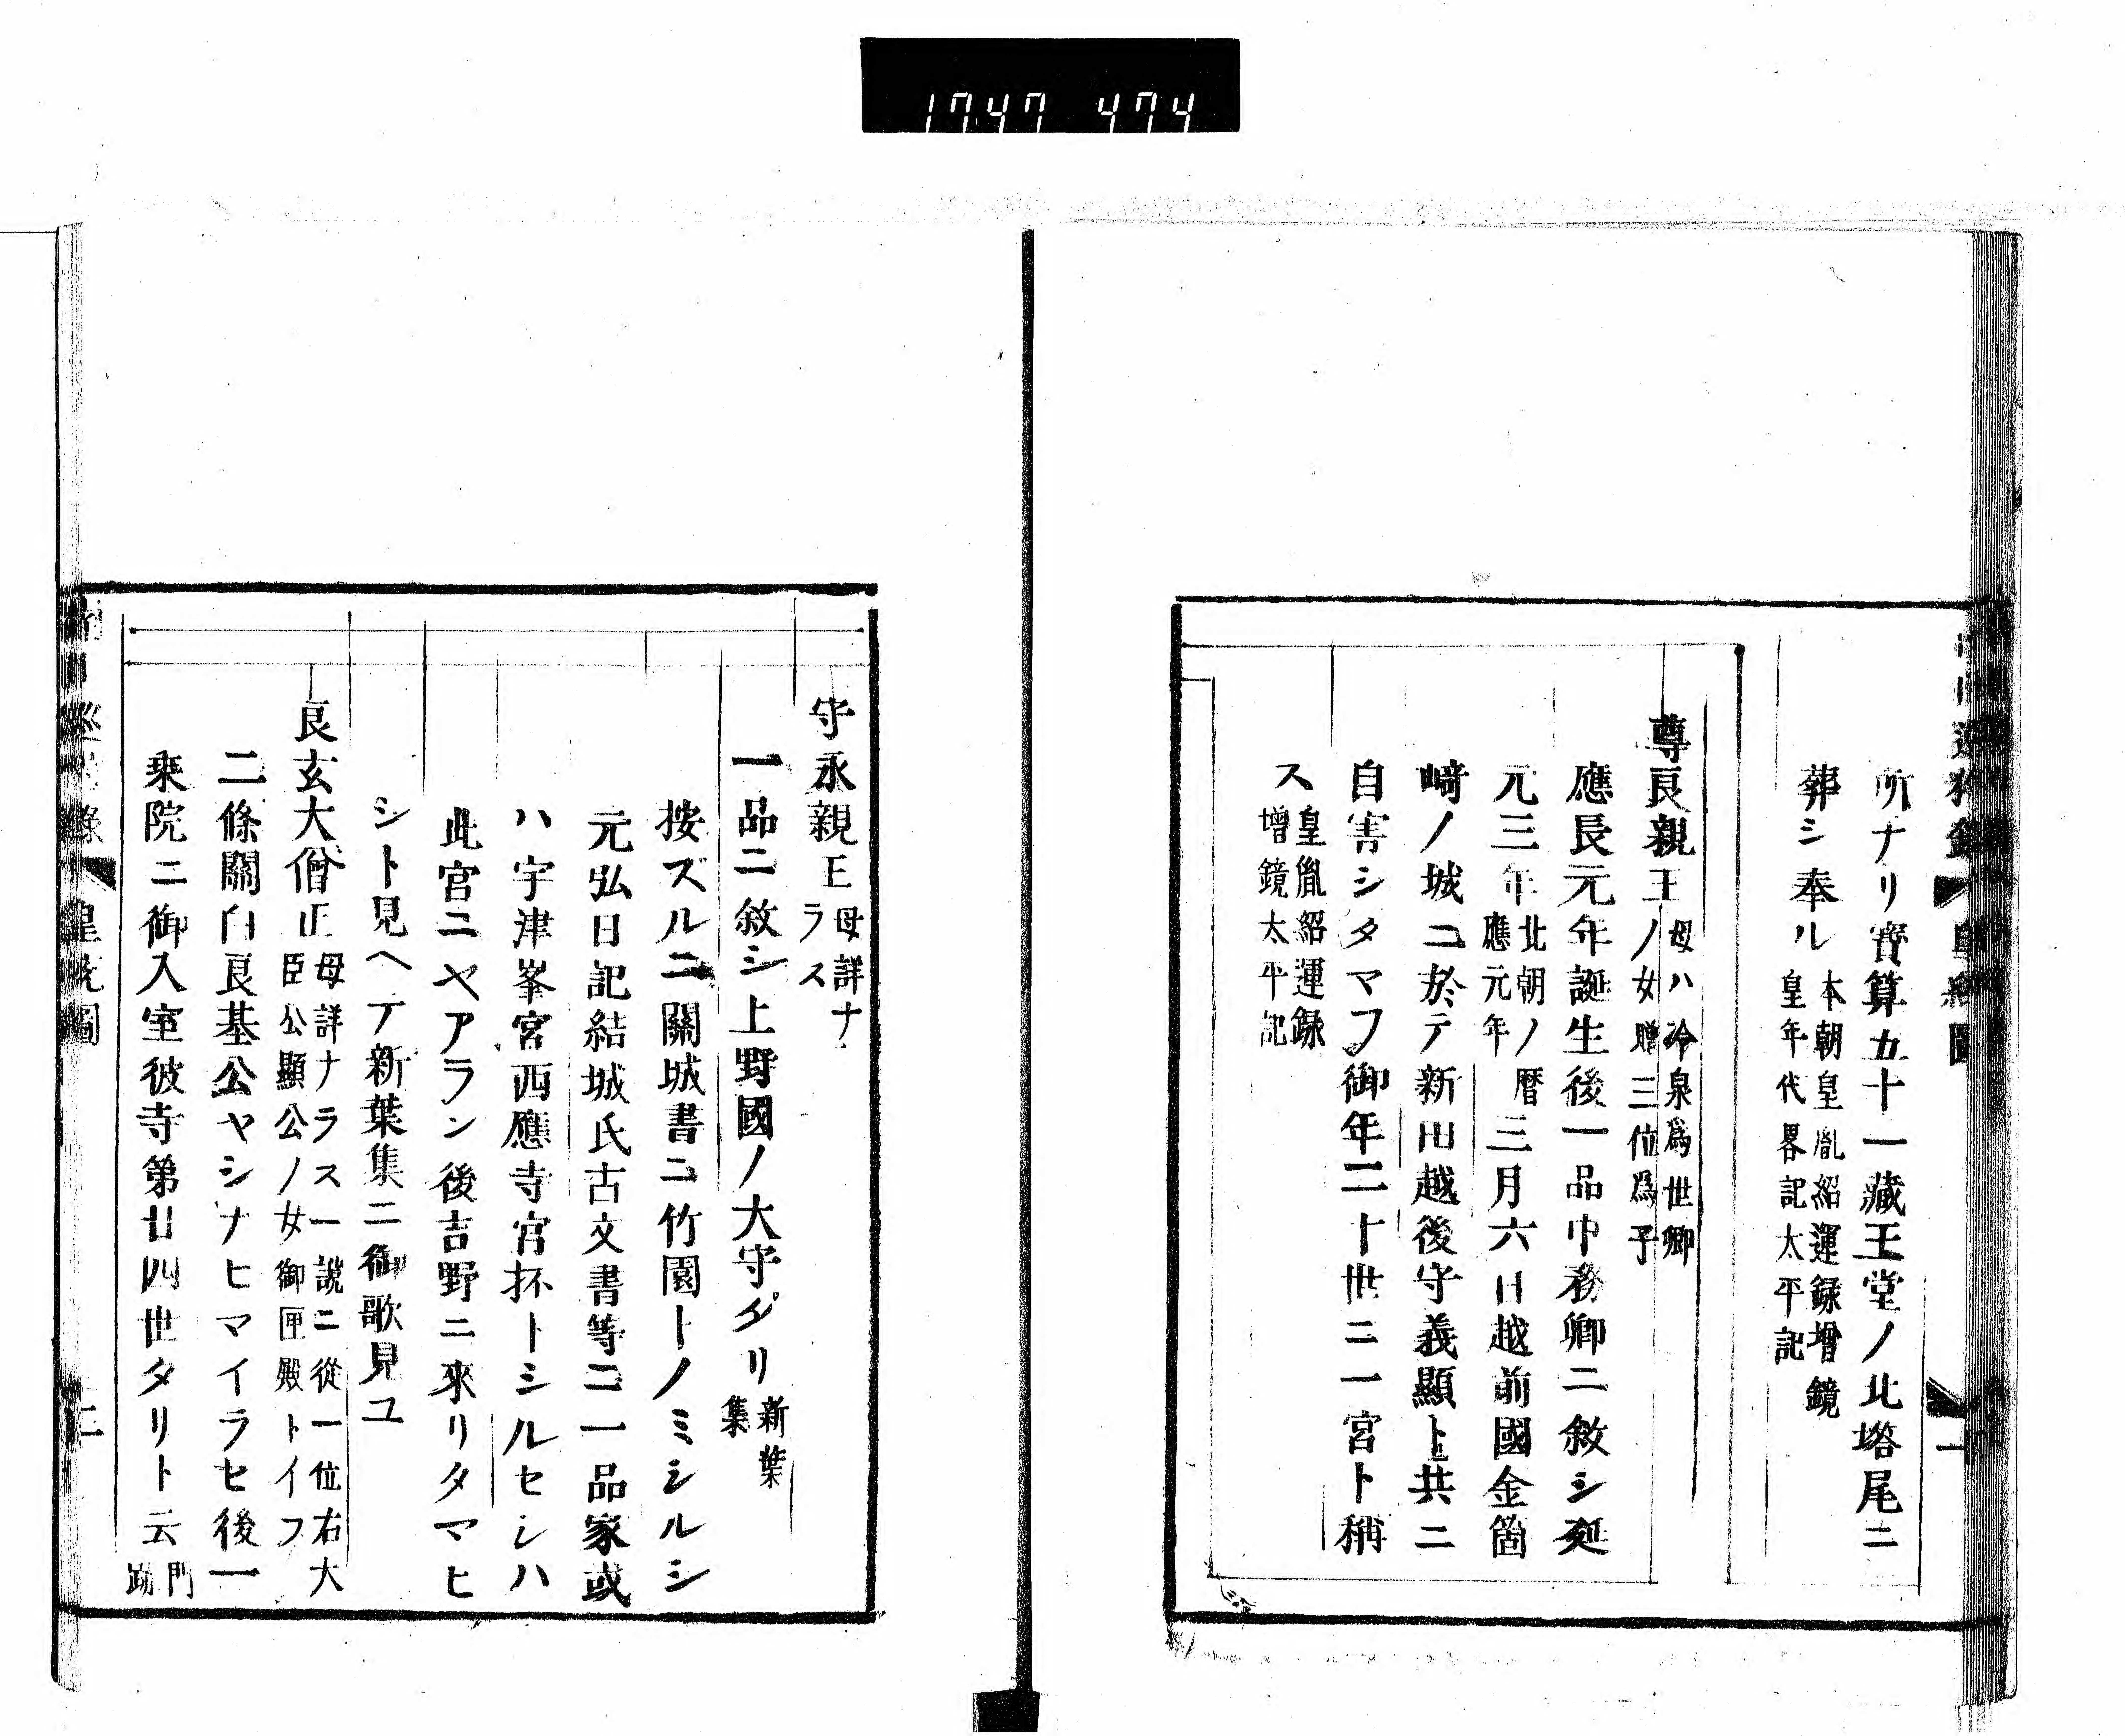 1747 474
所ナリ寶算五十一藏王堂ノ北塔尾ニ
葬シ奉ル
本朝皇胤紹運録增鏡
皇年代畧記太平記
尊良親王
母ハ冷泉爲世卿
ノ女贈三位爲子
應長元年誕生後一品中務卿ニ敘シ延
元三年
北朝ノ暦
應元年
三月六日越前國金箇
崎ノ城ニ於テ新田越後守義顯ト共ニ
自害シタマフ御年二十世ニ一宮ト稱
ス
皇胤紹運録
增鏡太平記
守永親王
母詳ナ
ラス
一品ニ敘シ上野國ノ大守タリ
新葉
集
按ズルニ關城書ニ竹園トノミシルシ
元弘日記結城氏古文書等ニ一品家或
ハ宇津峯宮西應寺宮抔トシルセシハ
此宮ニヤアラン後吉野ニ來リタマヒ
シト見ヘテ新葉集ニ御歌見ユ
良玄大僧正
母詳ナラス一説ニ從一位右大
臣公顯公ノ女御匣殿トイフ
二條關白良基公ヤシナヒマイラセ後一
乗院ニ御入室彼寺第廿四世タリト云
門
跡
皇統圖
二